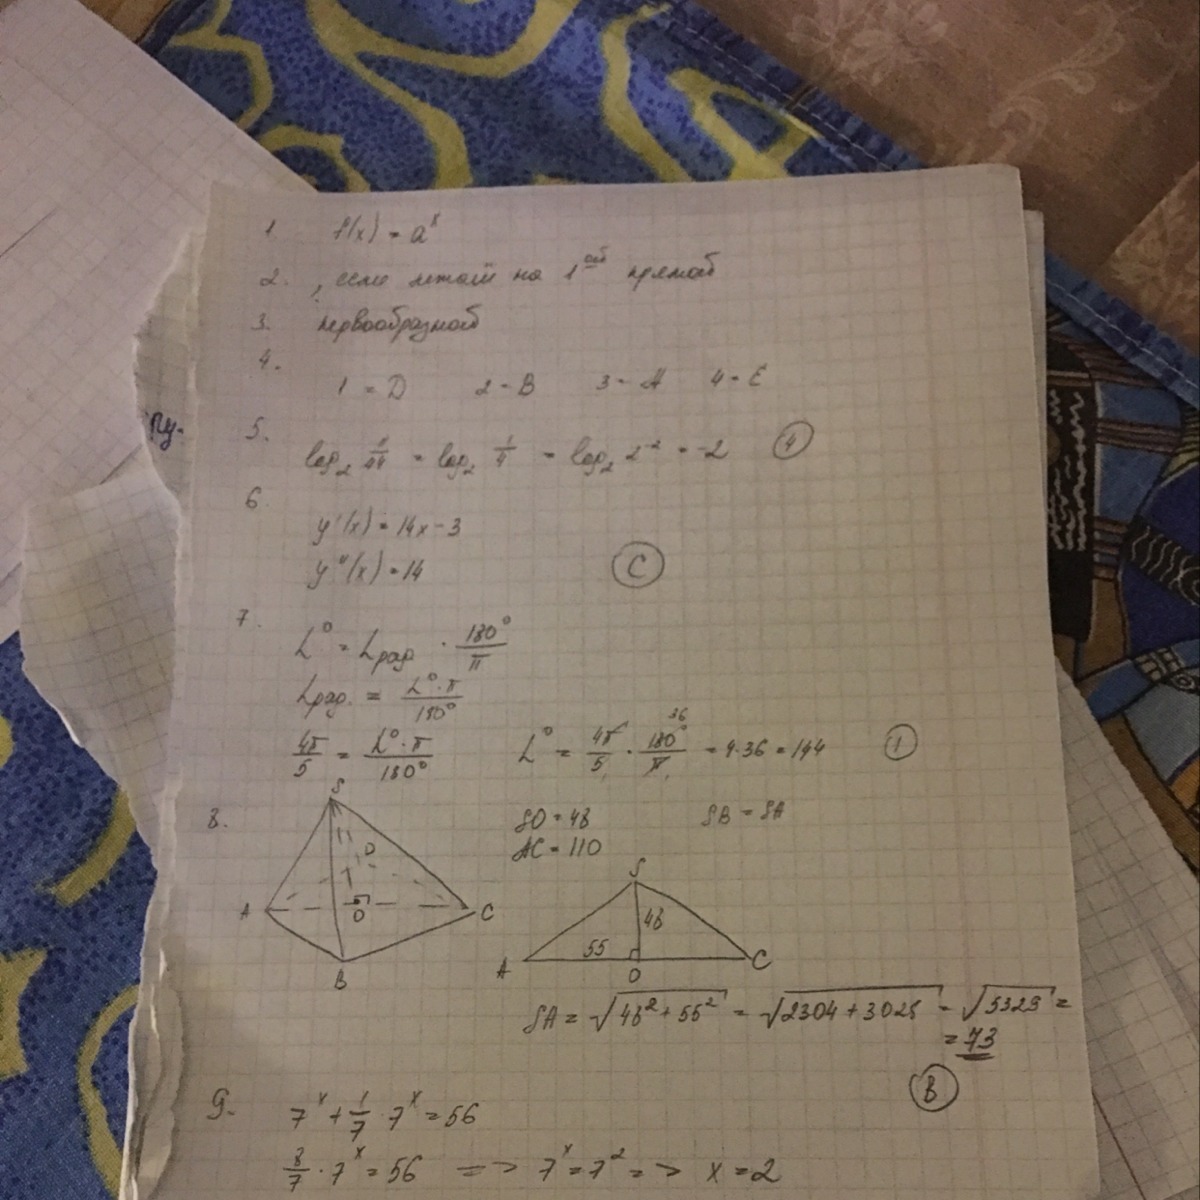 1. f(x) = aˣ
2. , если лежат на 1ой прямой
3. первообразной
4.
1 = D 2 - B 3 - A 4 - E
5.
log₂ = log₂ 1/4 = log₂ 2⁻² = -2 4
6.
y'(x) = 14x - 3
y''(x) = 14 C
7.
L° = Lрад · 180°/π
Lрад. = L°·π/180°
4π/5 = L°·π/180° L° = 4π/5 · 180°/π = 4·36 = 144 1
36
Пу-
8. SO = 48 SB = SA
AC = 110
S
D
A O C
B
S
48
55
A O C
SA = √(48² + 55²) = √(2304 + 3025) = √5329 =
= 73
B
9. 7ˣ + 1/7 · 7ˣ = 56
8/7 · 7ˣ = 56 => 7ˣ = 7² => x = 2